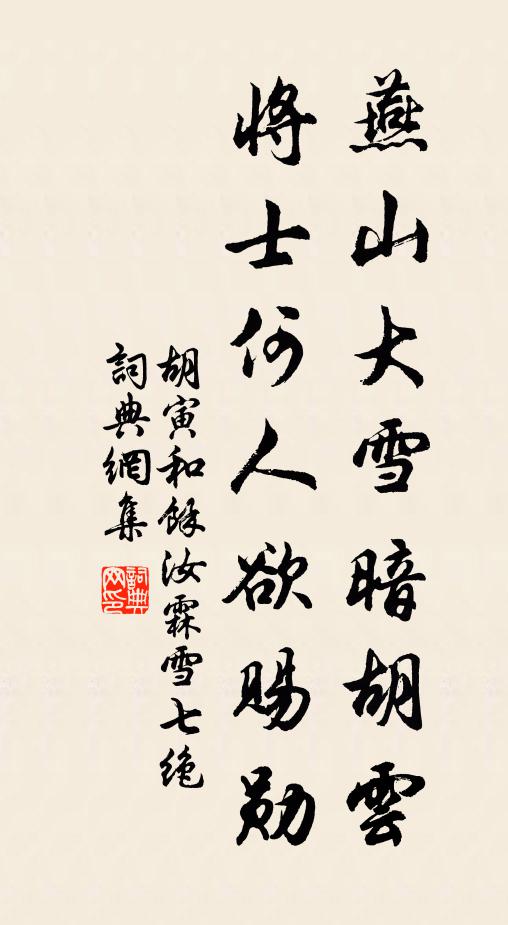 燕山大雪暗胡雲
將士何人欲賜勛
胡寅和餘汝霖雪七绝
詞典網集
詞典
网印